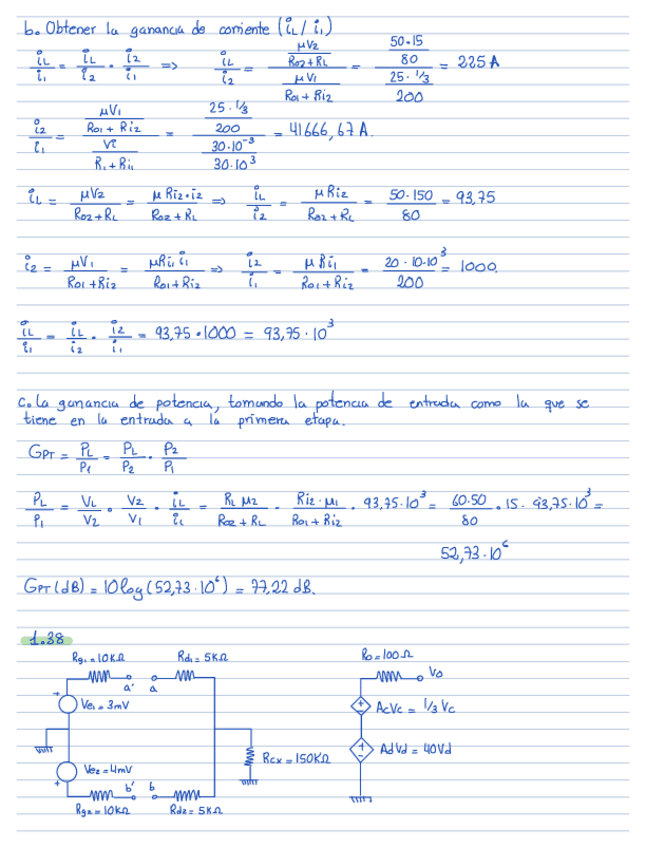 b. Obtener la ganancia de corriente (iL / i1)
iL/i1 = iL/i2 · i2/i1 => iL/i2 = (μV2/(Ro2+RL))/(μV1/(Ro1+Ri2)) = (50·15/80)/(25·1/3/200) = 225 A
i2/i1 = (μV1/(Ro1+Ri2))/(Vi/(R1+Ri1)) = (25·1/3/200)/(30·10^-3/30·10^3) = 41666,67 A.
iL = μV2/(Ro2+RL) = μRi2·i2/(Ro2+RL) => iL/i2 = μRi2/(Ro2+RL) = 50·150/80 = 93,75
i2 = μV1/(Ro1+Ri2) = μRi1 i1/(Ro1+Ri2) => i2/i1 = μRi1/(Ro1+Ri2) = 20·10·10^3/200 = 1000.
iL/i1 = iL/i2 · i2/i1 = 93,75 · 1000 = 93,75·10^3
c. La ganancia de potencia, tomando la potencia de entrada como la que se
tiene en la entrada a la primera etapa.
GPT = PL/P1 = PL/P2 · P2/P1
PL/P1 = VL/V2 · V2/V1 · iL/i1 = RL μ2/(Ro2+RL) · Ri2·μ1/(Ro1+Ri2) · 93,75·10^3 = 60·50/80 · 15 · 93,75·10^3 =
52,73·10^6
GPT (dB) = 10 log (52,73·10^6) = 77,22 dB.
1.38
Rg1 = 10KΩ Rd1 = 5KΩ Ro = 100Ω
a' a Vo
+ Ve1 = 3mV AcVc = 1/3 Vc
Rcx = 150KΩ AdVd = 40Vd
Ve2 = 4mV
+ b' b
Rg2 = 10KΩ Rd2 = 5KΩ